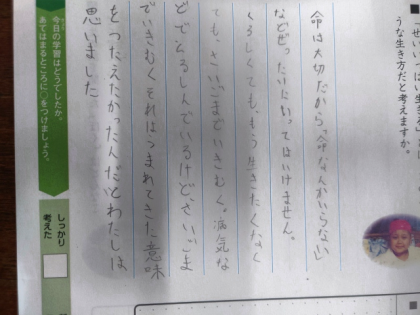 ■
せいいっぱい生きる
うな生き方だと考えますか。
命は大切だから「命なんかいらない」
などぜったいにいってはいけません。
くるしくても、もう生きたくなく
ても、さいごまでいきぬく。病気な
どでくるしんでいるけど、さいごま
でいきぬくそれはつまれてきた意味
をつたえたかったんだとわたしは
思いました
今日の学習はどうでしたか。
あてはまるところに○をつけましょう。
しっかり
考えた